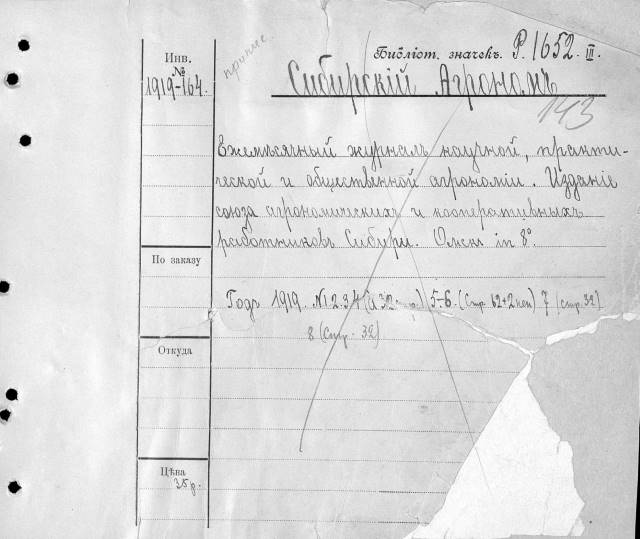 Инв.
№
1919-164.
Библіот. значекъ. Р. 1652 III.
Сибирскій Агрономъ
143
Ежемѣсячный журналъ научной, практи-
ческой и общественной агрономіи. Изданіе
союза агрономическихъ и кооперативныхъ
работниковъ Сибири. Омскъ in 8º.
По заказу
Годъ 1919. №1.2.3.4 (à 32 стр.) 5-6. (Стр. 62+2 нен) 7 (стр. 32)
8 (Стр. 32)
Откуда
Цѣна
35 р.